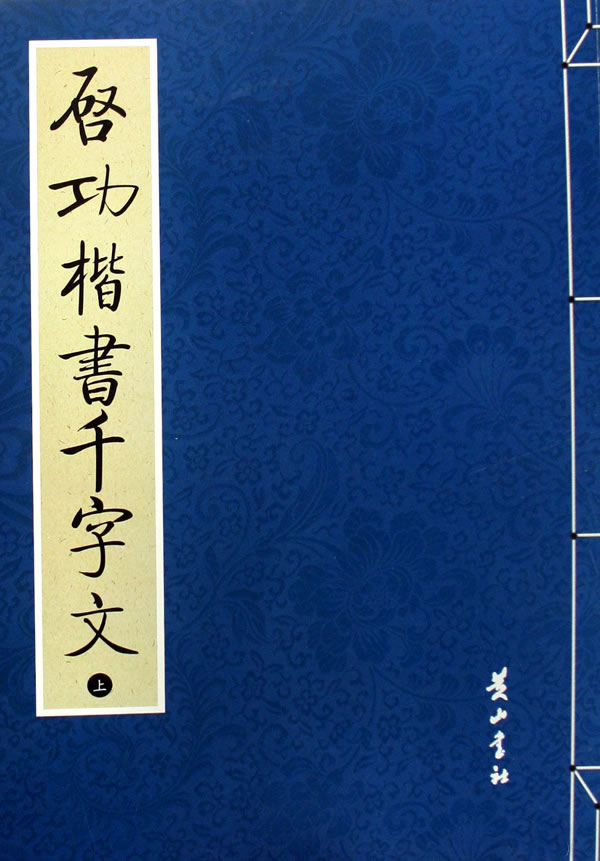 啓功楷書千字文
上
黄山書社